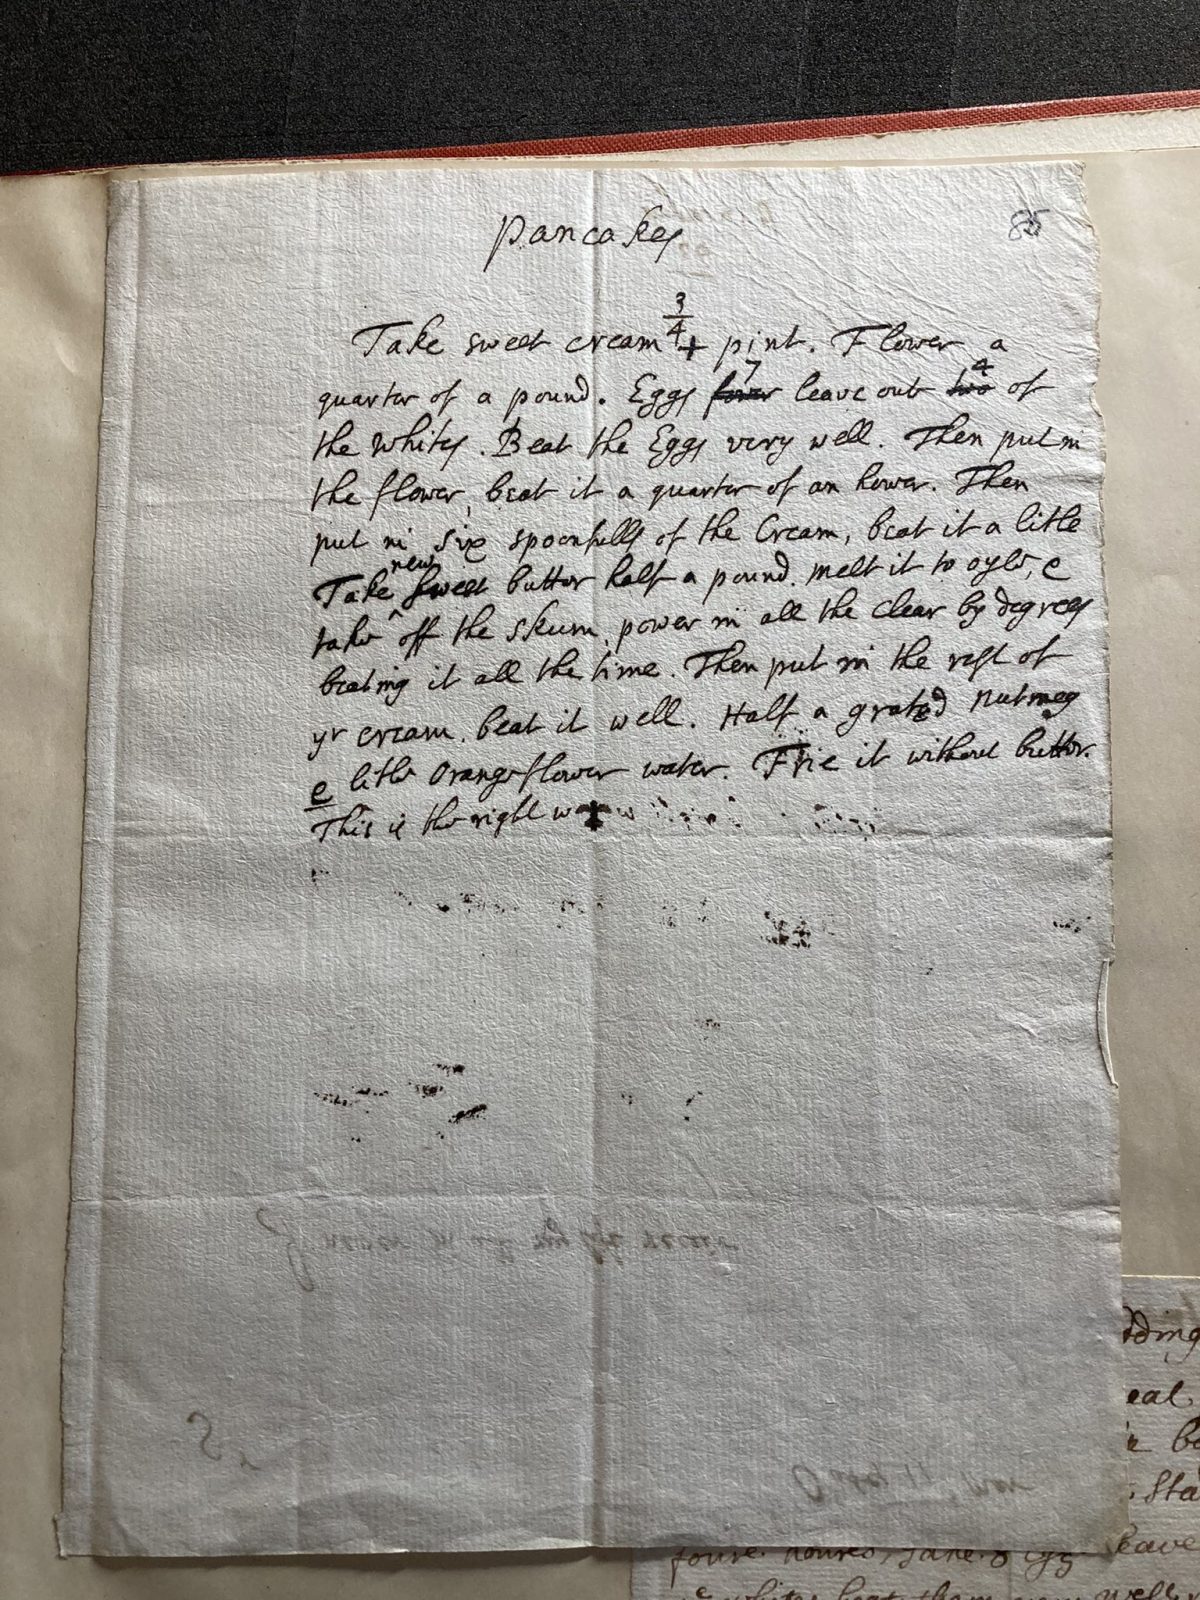 pancakes
85
Take sweet cream 3/4 + pint. Flower a
quarter of a pound. Eggs fower 7 leave out two 4 of
the whites. Beat the Eggs very well. Then put in
the flower, beat it a quarter of an hower. Then
put in six spoonfulls of the Cream, beat it a litle
Take new sweet butter half a pound. melt it to oyle, e
take off the skum, power in all the clear by degrees
beating it all the time. Then put in the rest of
yr cream. beat it well. Half a grated nutmeg
e litle orangeflower water. Frie it without butter.
This is the right way
dding
eal.
Sta
leave
foure houres, Take 8 egs
whites beat them very well